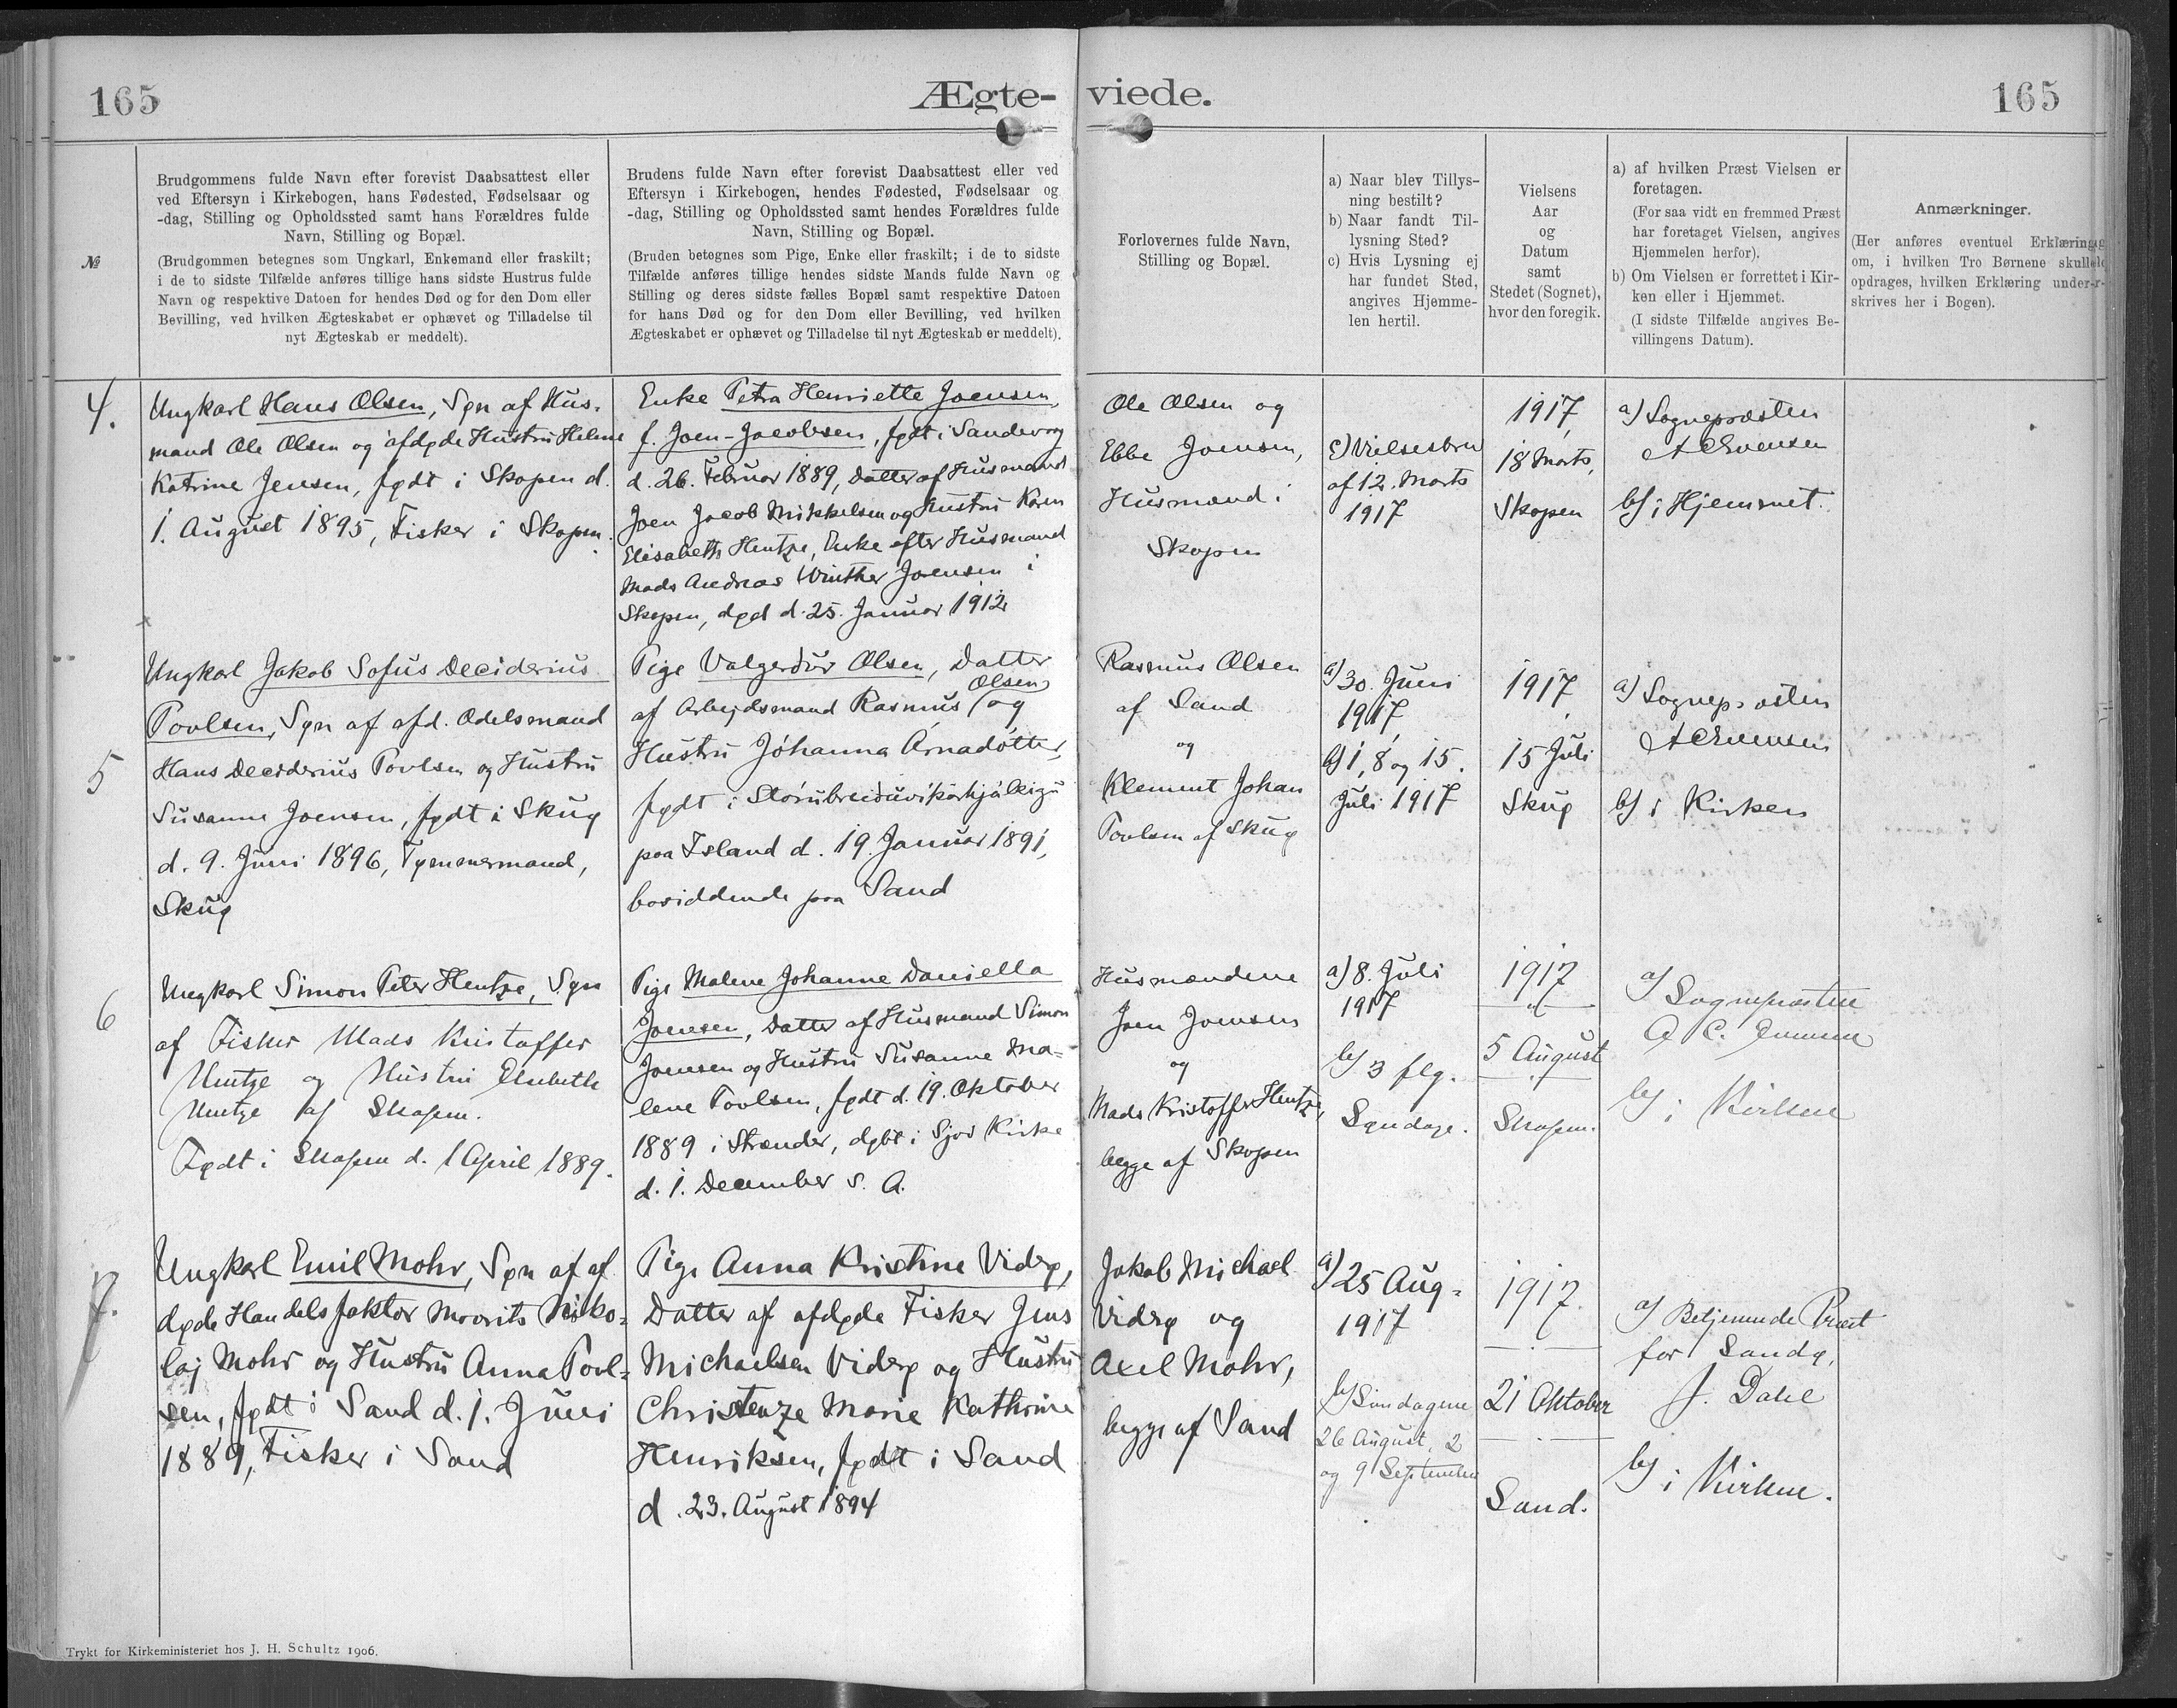 165
Ægte-
viede.
165
№
Brudgommens fulde Navn efter forevist Daabsattest eller
ved Eftersyn i Kirkebogen, hans Fødested, Fødselsaar og
-dag, Stilling og Opholdssted samt hans Forældres fulde
Navn, Stilling og Bopæl.
(Brudgommen betegnes som Ungkarl, Enkemand eller fraskilt;
i de to sidste Tilfælde anføres tillige hans sidste Hustrus fulde
Navn og respektive Datoen for hendes Død og for den Dom eller
Bevilling, ved hvilken Ægteskabet er ophævet og Tilladelse til
nyt Ægteskab er meddelt).
Brudens fulde Navn efter forevist Daabsattest eller ved
Eftersyn i Kirkebogen, hendes Fødested, Fødselsaar og
-dag, Stilling og Opholdssted samt hendes Forældres fulde
Navn, Stilling og Bopæl.
(Bruden betegnes som Pige, Enke eller fraskilt; i de to sidste
Tilfælde anføres tillige hendes sidste Mands fulde Navn og
Stilling og deres sidste fælles Bopæl samt respektive Datoen
for hans Død og for den Dom eller Bevilling, ved hvilken
Ægteskabet er ophævet og Tilladelse til nyt Ægteskab er meddelt).
Forlovernes fulde Navn,
Stilling og Bopæl.
a) Naar blev Tillys-
ning bestilt?
b) Naar fandt Til-
lysning Sted?
c) Hvis Lysning ej
har fundet Sted,
angives Hjemme-
len hertil.
Vielsens
Aar
og
Datum
samt
Stedet (Sognet),
hvor den foregik.
a) af hvilken Præst Vielsen er
foretagen.
(For saa vidt en fremmed Præst
har foretaget Vielsen, angives
Hjemmelen herfor).
b) Om Vielsen er forrettet i Kir-
ken eller i Hjemmet.
(I sidste Tilfælde angives Be-
villingens Datum).
Anmærkninger.
(Her anføres eventuel Erklæring
om, i hvilken Tro Børnene skulle
opdrages, hvilken Erklæring under-
skrives her i Bogen).
4.
Ungkarl Hans Olsen, Søn af Hus-
mand Ole Olsen og afdøde Hustru Helene
Katrine Jensen, født i Skopen d.
1. August 1895, Fisker i Skopen.
Enke Petra Henriette Joensen,
f. Joen-Jacobsen, født i Sandevog
d. 26. Februar 1889, Datter af Husmand
Joen Jacob Mikkelsen og Hustru Karen
Elisabeth Hentze, Enke efter Husmand
Mads Andreas Winther Joensen i
Skopen, død d. 25. Januar 1912
Ole Olsen og
Ebbe Joensen,
Husmænd i
Skopen
c) Vielsesbrev
af 12. Marts
1917
1917,
18 Marts,
Skopen
a) Sognepræsten
A C Evensen
b) i Hjemmet.
5
Ungkarl Jakob Sofus Deciderius
Poulsen, Søn af afd. Odelsmand
Hans Deciderius Poulsen og Hustru
Susanne Joensen, født i Skúg
d. 9. Juni 1896, Tømmermand,
Skúg
Pige Valgerdur Olsen, Datter
af Arbejdsmand Rasmus Olsen og
Hustru Jóhanna Árnadóttir,
født i Stórubreiduvíkurhjáleigu
paa Island d. 19. Januar 1891,
bosiddende paa Sand
Rasmus Olsen
af Sand
og
Klement Johan
Poulsen af Skúg
a) 30. Juni
1917,
b) 1, 8 og 15.
Juli 1917
1917,
15 Juli
Skúg
a) Sognepræsten
A C Evensen
b) i Kirken
6
Ungkarl Simon Peter Hentze, Søn
af Fisker Mads Kristoffer
Hentze og Hustru Elsebeth
Hentze af Skopen.
Født i Skopen d. 1 April 1889.
Pige Malene Johanne Daniella
Joensen, Datter af Husmand Simon
Joensen og Hustru Susanne Ma-
lene Poulsen, født d. 19. Oktober
1889 i Strænder, døbt i Sjov Kirke
d. 1. December s. A.
Husmændene
Joen Joensen
og
Mads Kristoffer Hentze,
begge af Skopen
a) 8. Juli
1917
b) 3 flg.
Søndage.
1917
5 August
Skopen.
a) Sognepræsten
A. C. Evensen
b) i Kirken
7.
Ungkarl Emil Mohr, Søn af af
døde Handelsfaktor Moorits Niko-
laj Mohr og Hustru Anna Poul-
sen, født i Sand d. 1. Juni
1889, Fisker i Sand
Pige Anna Kristine Viderø,
Datter af afdøde Fisker Jens
Michaelsen Viderø og Hustru
Christenze Marie Kathrine
Henriksen, født i Sand
d. 23. August 1894
Jakob Michael
Viderø og
Axel Mohr,
begge af Sand
a) 25 Aug.
1917
b) Søndagene
26 August, 2
og 9 September
1917.
21 Oktober
Sand.
a) Betjenende Præst
for Sandø,
J. Dahl
b) i Kirken.
Trykt for Kirkeministeriet hos J. H. Schultz 1906.